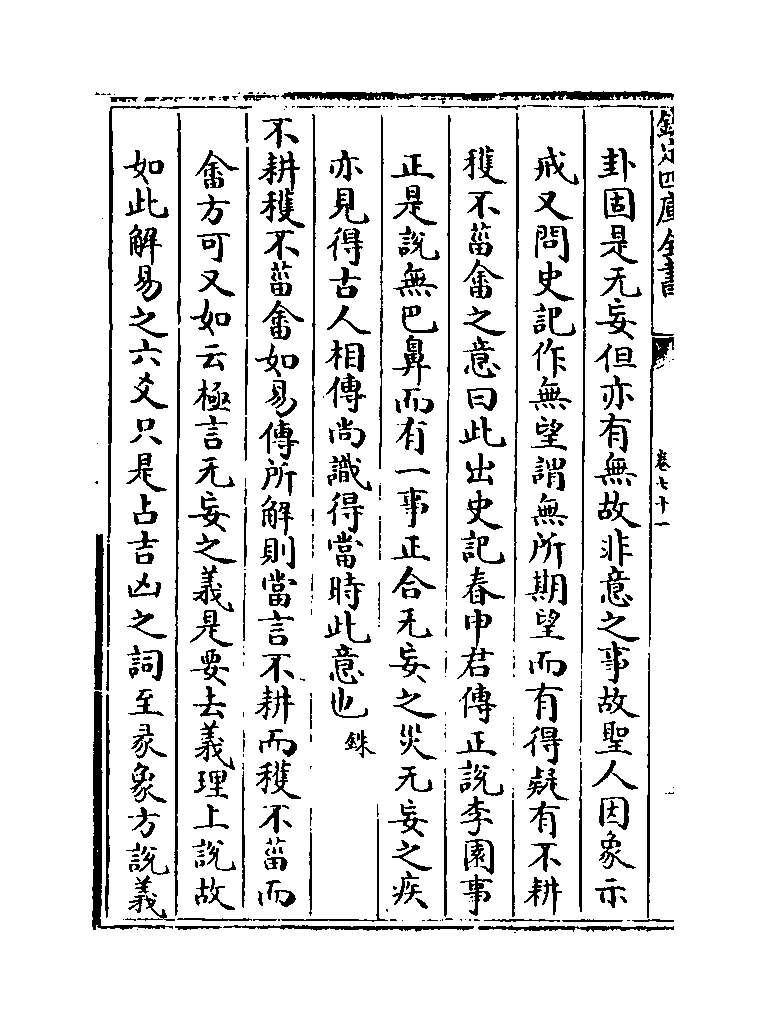 欽定四庫全書
卷七十一
卦固是无妄但亦有無故非意之事故聖人因象示
戒又問史記作無望謂無所期望而有得疑有不耕
穫不菑畬之意曰此出史記春申君傳正說李園事
正是說無巴鼻而有一事正合无妄之災无妄之疾
亦見得古人相傳尚識得當時此意也銖
不耕穫不菑畬如易傳所解則當言不耕而穫不菑而
畬方可又如云極言无妄之義是要去義理上說故
如此解易之六爻只是占吉凶之詞至彖象方說義